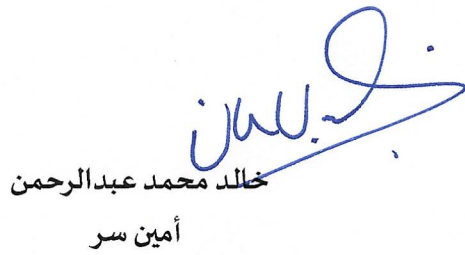 خالد محمد عبدالرحمن
أمين سر